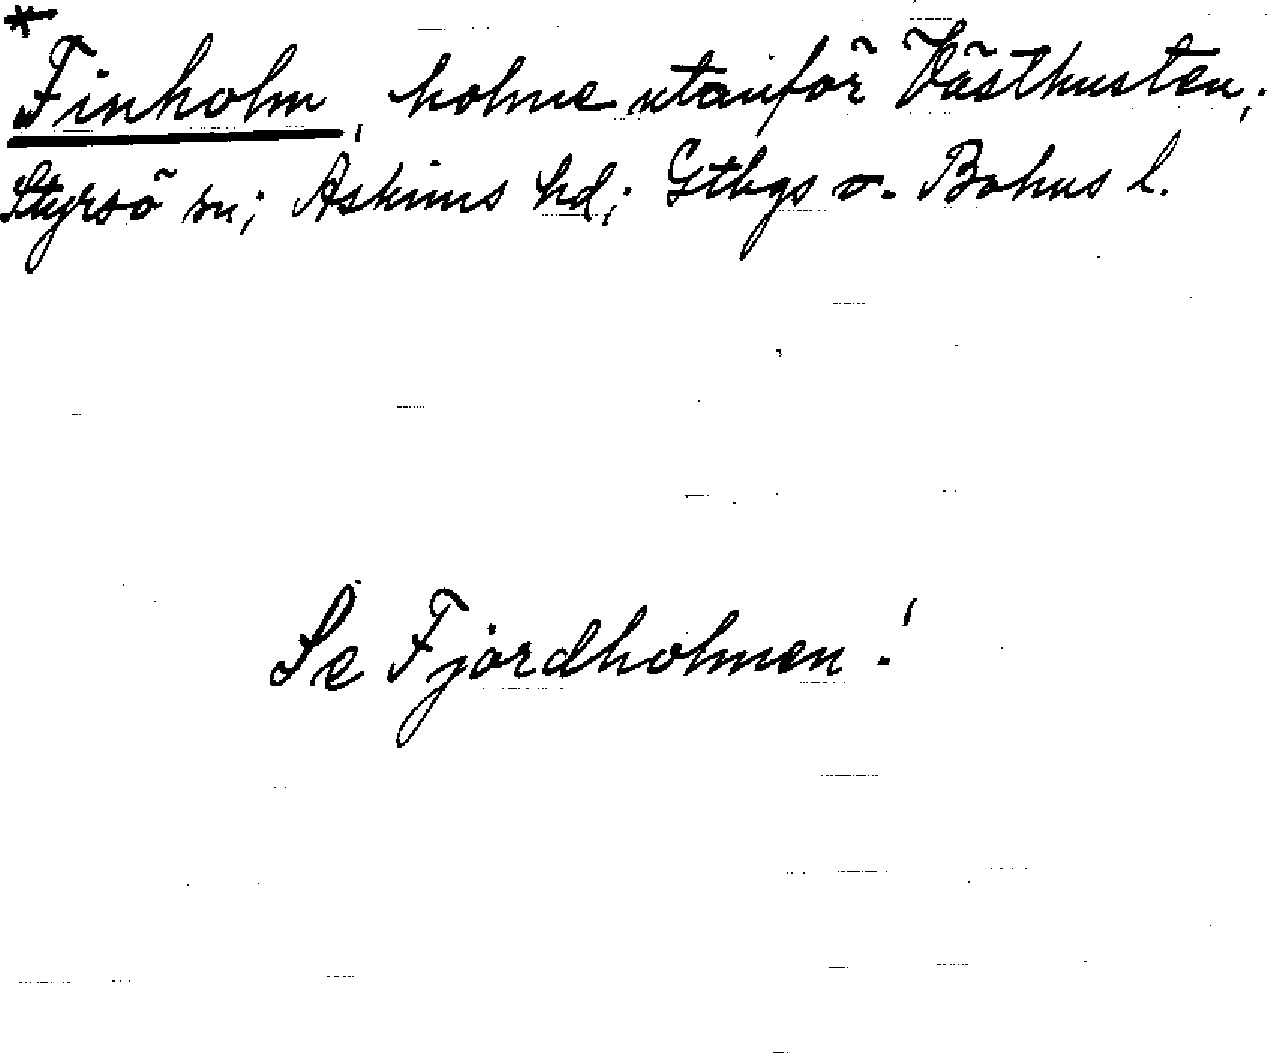 *
Finholm, holme utanför Västkusten;
Styrsö sn; Askims hd; Gtbgs o. Bohus l.
Se Fjordholmen!